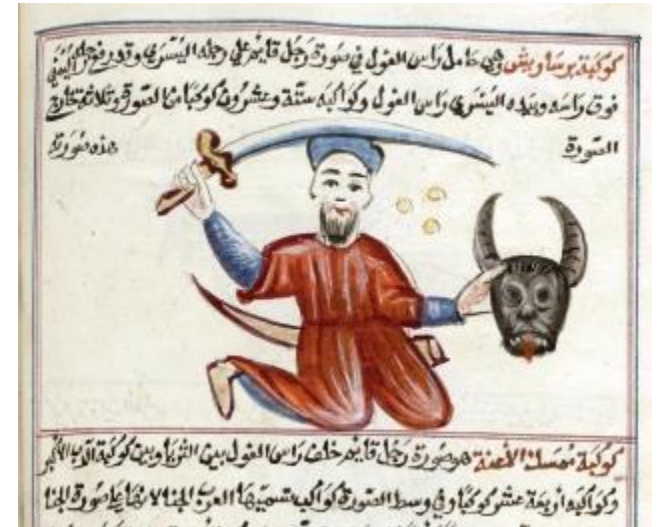 كوكبة برساويش وهى حامل راس الغول فى صورة رجل قايم على رجله اليسرى وقد رفع رجله اليمنى
فوق راسه وبيده اليسرى راس الغول وكواكبه ستة وعشرون كوكبا من الصورة وثلاثة خارج
الصورة هذه صورة
كوكبة ممسك الاعنة هو صورة رجل قايم خلف راس الغول بين الثريا وبين كوكبة الدب الاكبر
وكواكبه اربعة عشر كوكبا وفى وسط الصورة كواكب تسميها العرب الجنا لانها على صورة الجنا